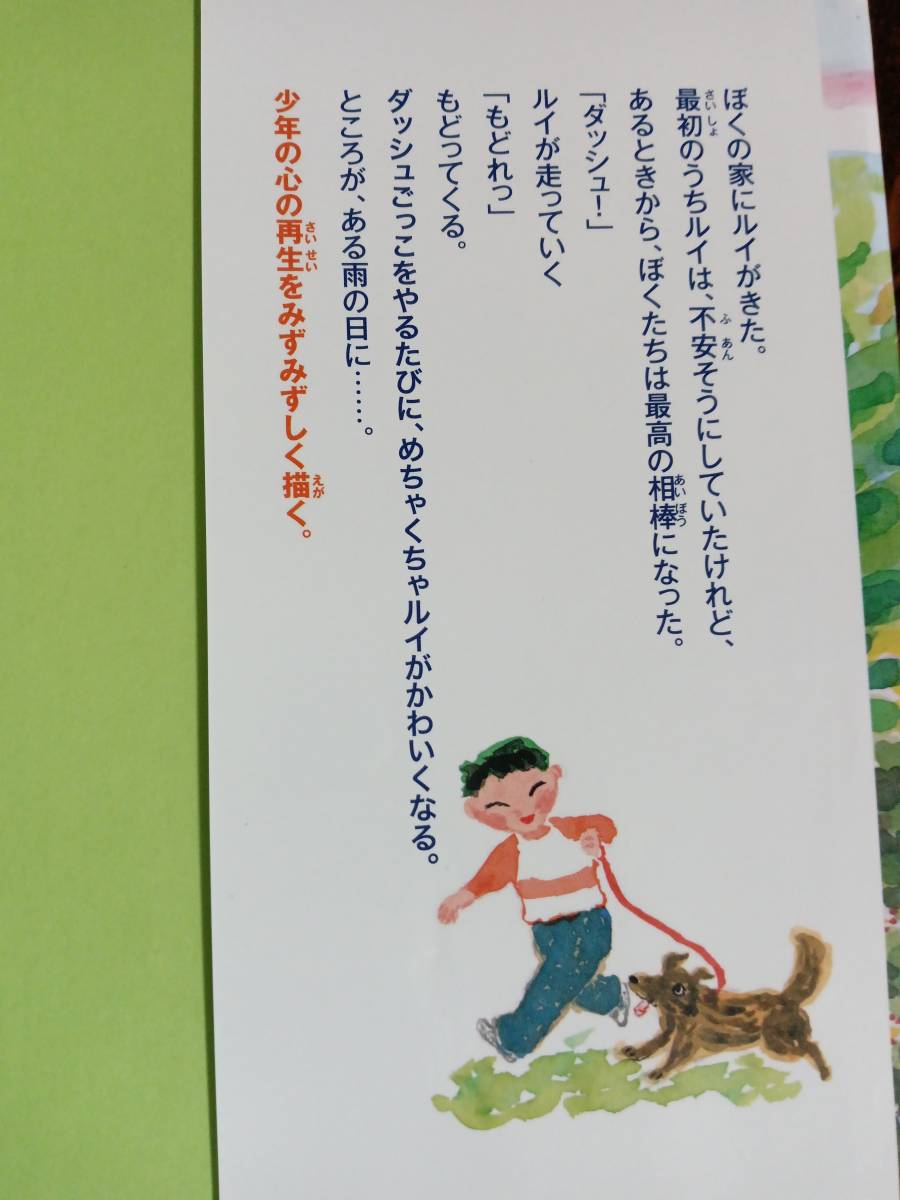 ぼくの家にルイがきた。
最初のうちルイは、不安そうにしていたけれど、
あるときから、ぼくたちは最高の相棒になった。
「ダッシュ！」
ルイが走っていく
「もどれっ」
もどってくる。
ダッシュごっこをやるたびに、めちゃくちゃルイがかわいくなる。
ところが、ある雨の日に……。
少年の心の再生をみずみずしく描く。